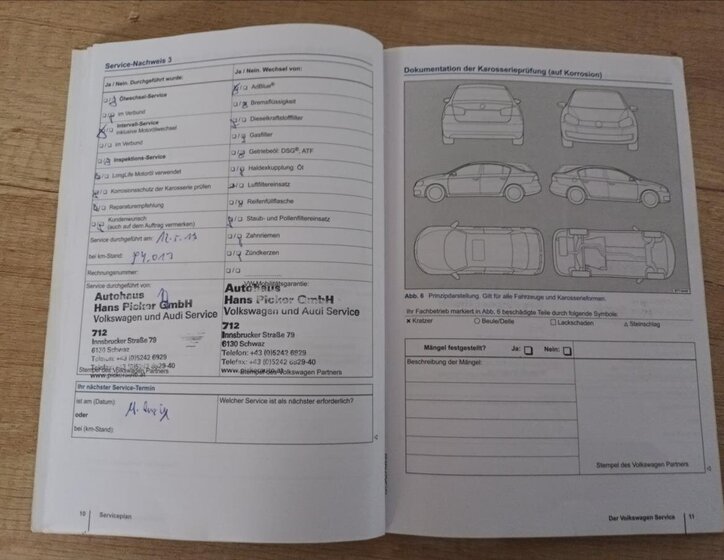 Service-Nachweis 3
Ja / Nein. Durchgeführt wurde:
Ölwechsel-Service
im Verbund
Intervall-Service
inklusive Motorölwechsel
im Verbund
Inspektions-Service
LongLife Motoröl verwendet
Korrosionsschutz der Karosserie prüfen
Reparaturempfehlung
Kundenwunsch
(auch auf dem Auftrag vermerken)
Service durchgeführt am:
bei km-Stand:
Rechnungsnummer:
Service durchgeführt von:
Autohaus
Hans Picker GmbH
Volkswagen und Audi Service
712
Innsbrucker Straße 79
6130 Schwaz
Telefon: +43 (0)5242 6929
Telefax: +43 (0)5242 6929-40
Stempel des Volkswagen Partners
Ja / Nein. Wechsel von:
AdBlue®
Bremsflüssigkeit
Dieselkraftstofffilter
Gasfilter
Getriebeöl: DSG®, ATF
Haldexkupplung Öl
Luftfiltereinsatz
Reifenfüllflasche
Staub- und Pollenfiltereinsatz
Zahnriemen
Zündkerzen
VW Mobilitätsgarantie:
Autohaus
Hans Picker GmbH
Volkswagen und Audi Service
712
Innsbrucker Straße 79
6130 Schwaz
Telefon: +43 (0)5242 6929
Telefax: +43 (0)5242 6929-40
Stempel des Volkswagen Partners
Ihr nächster Service-Termin
ist am (Datum):
oder
bei (km-Stand):
Welcher Service ist als nächster erforderlich?
10 Serviceplan
Dokumentation der Karosserieprüfung (auf Korrosion)
Abb. 6 Prinzipdarstellung. Gilt für alle Fahrzeuge und Karosserieformen.
Ihr Fachbetrieb markiert in Abb. 6 beschädigte Teile durch folgende Symbole:
× Kratzer ○ Beule/Delle □ Lackschaden △ Steinschlag
Mängel festgestellt? Ja: Nein:
Beschreibung der Mängel:
Stempel des Volkswagen Partners
Der Volkswagen Service 11